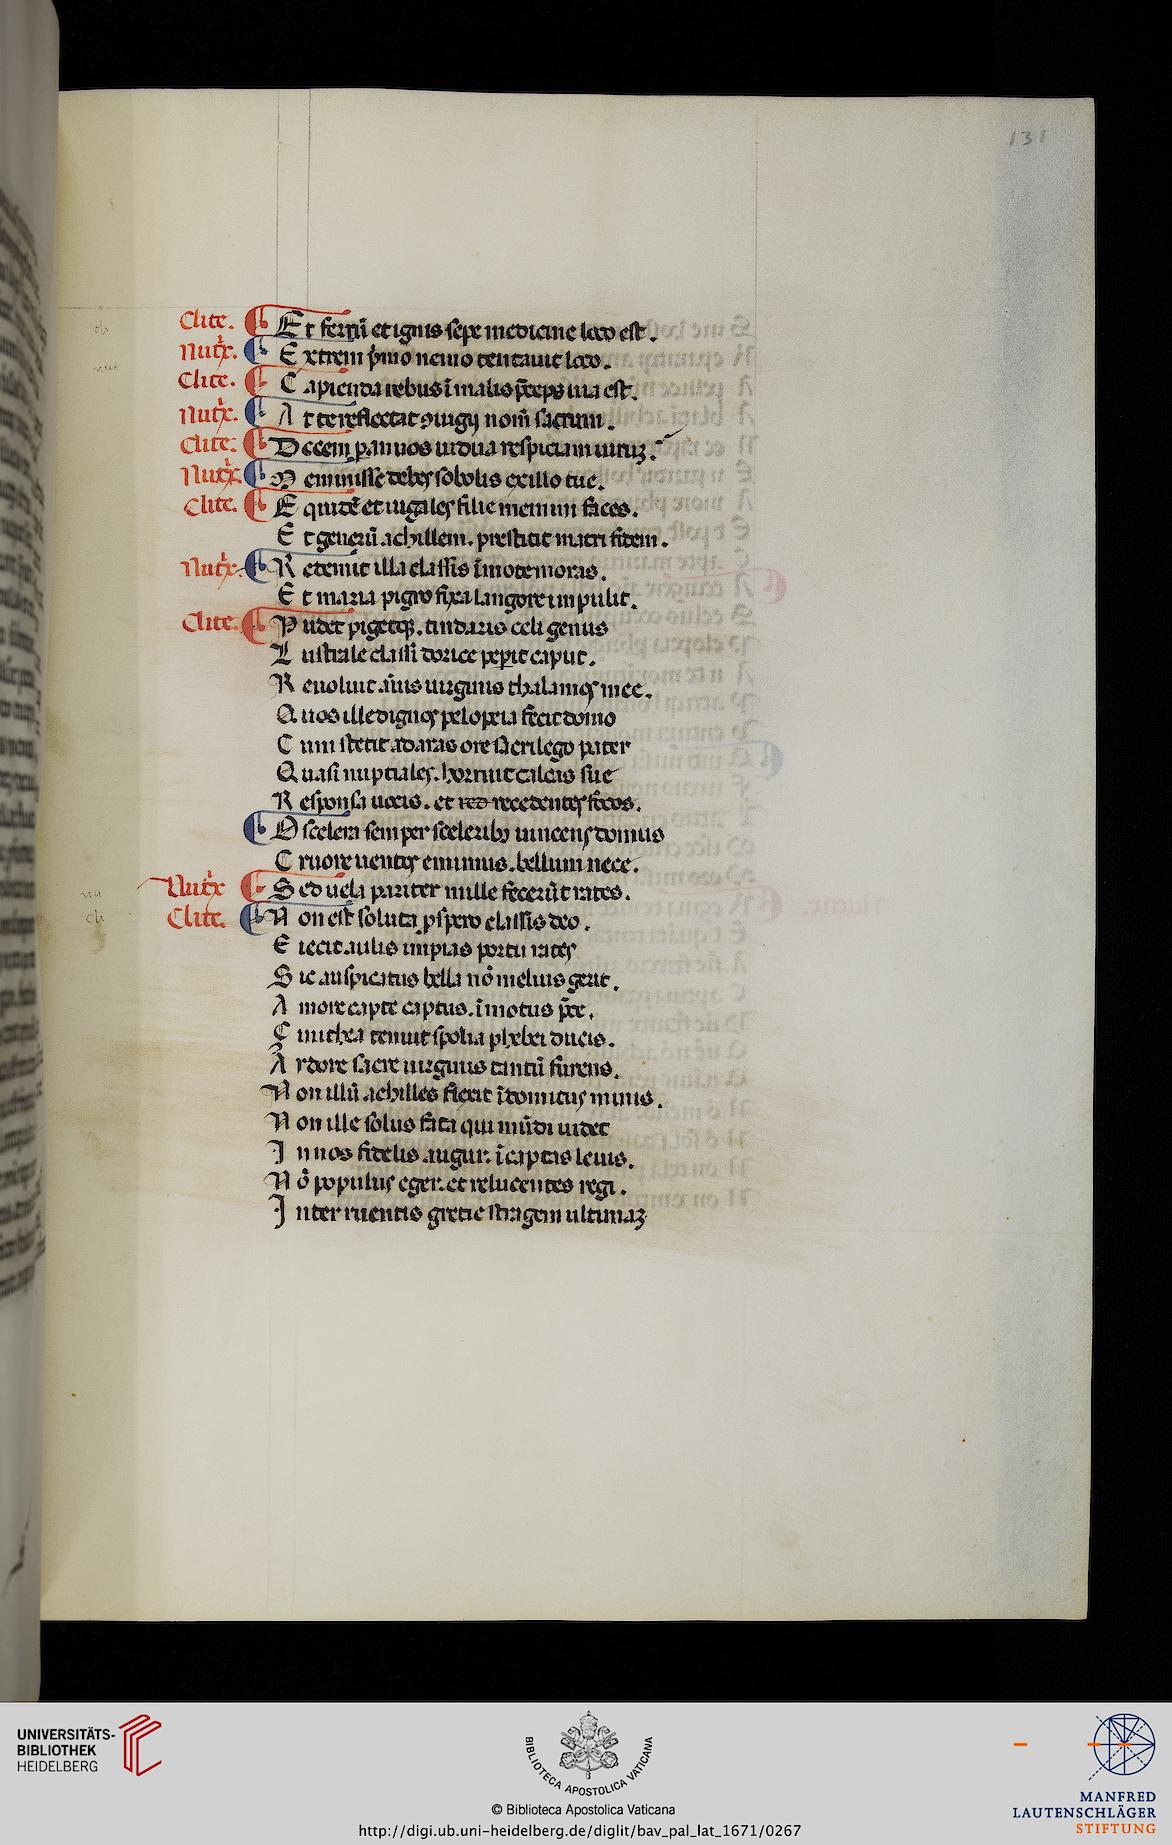 131
Clite. Et ferrū et ignis sepe medicine loco est.
Nutꝛ̉x. Extrem p̉mo nemo tentauit loco.
Clite. Capienda rebus ī malis p̄ceps uia est.
Nutꝛ̉x. At te reflectat ꝯiugij nom̄ sacrum.
Clite. Decem ꝑ annos uidua respiciam uiruꝫ.
Nutꝛ̉x. Meminisse debes sobolis ex illo tue.
Clite. Equidē et iugales filie memini faces.
Et generū achillem. prestitit matri fidem.
Nutꝛ̉x. Retemit illa classis īmote moras.
Et maria pigro fixa langore impulit.
Clite. Pudet pigetqꝫ. tindaris celi genus
Lustrale classi dorice peꝑit caput.
Reuoluit aīus uirginis thalamos mee.
Quos ille dignos pelopeia fecit domo
Cum stetit ad aras ore sacrilego pater
Quasi nuptiales. horruit calcas sue
Responsa uocis. et red recedentes focos.
O scelera semper sceleribꝫ uincens domus
Cruore uentos emimus. bellum nece.
Nutꝛ̉x Sed uela pariter mille fecerūt rates.
Clite. Non est soluta ꝓspero classis deo.
Eiecit aulis impias portu rates
Sic auspicatus bella nō melius gerit.
Amore capte captus. īmotus p̄ce.
Smithea tenuit spolia phebei ducis.
Ardore sacre uirginis tantū furens.
Non illū achilles flexit īdomitus minis.
Non ille solus fata qui mūdi uidet
In nos fidelis augur. ī captas leuis.
Nō populus eger. et relucentes rogi.
Inter ruentis grecie stragem ultimaꝫ
UNIVERSITÄTS-
BIBLIOTHEK
HEIDELBERG
BIBLIOTECA APOSTOLICA VATICANA
© Biblioteca Apostolica Vaticana
http://digi.ub.uni-heidelberg.de/diglit/bav_pal_lat_1671/0267
MANFRED
LAUTENSCHLÄGER
STIFTUNG